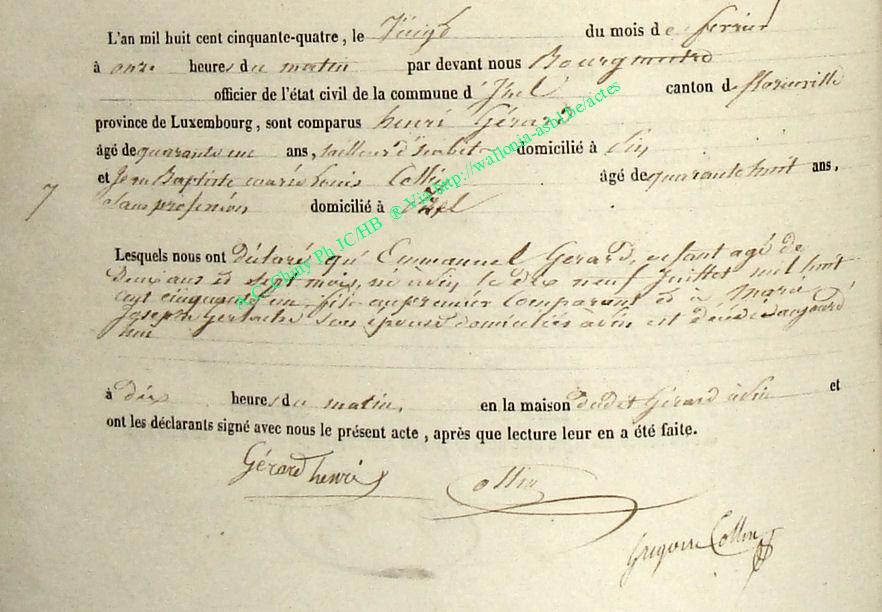 L'an mil huit cent cinquante-quatre, le Vingt du mois de fevrier
à onze heures du matin par devant nous Bourgmestre
officier de l'état civil de la commune d'Izel canton de florenville
province de Luxembourg, sont comparus henri Gérard
âgé de quarante un ans, tailleur d'habit domicilié à
et Jean Baptiste marie Louis Collin âgé de quarante huit ans,
7 Sans profession domicilié à Izel
Lesquels nous ont Déclaré qu'Emmanuel Gerard, enfant agé de
Deux ans et sept mois, né à le dix neuf Juillet mil huit
cent cinquante un, fils au premier Comparant et à Marie
Joseph Gerlache son épouse domiciliés à est décédé aujourd
hui
à dix heures du matin, en la maison dudit Gérard à et
ont les déclarants signé avec nous le présent acte, après que lecture leur en a été faite.
Gérard henri Collin
Gregoire Collin
A.C. Chiny Ph JC/HB ® Via http://wallonia-asbl.be/actes